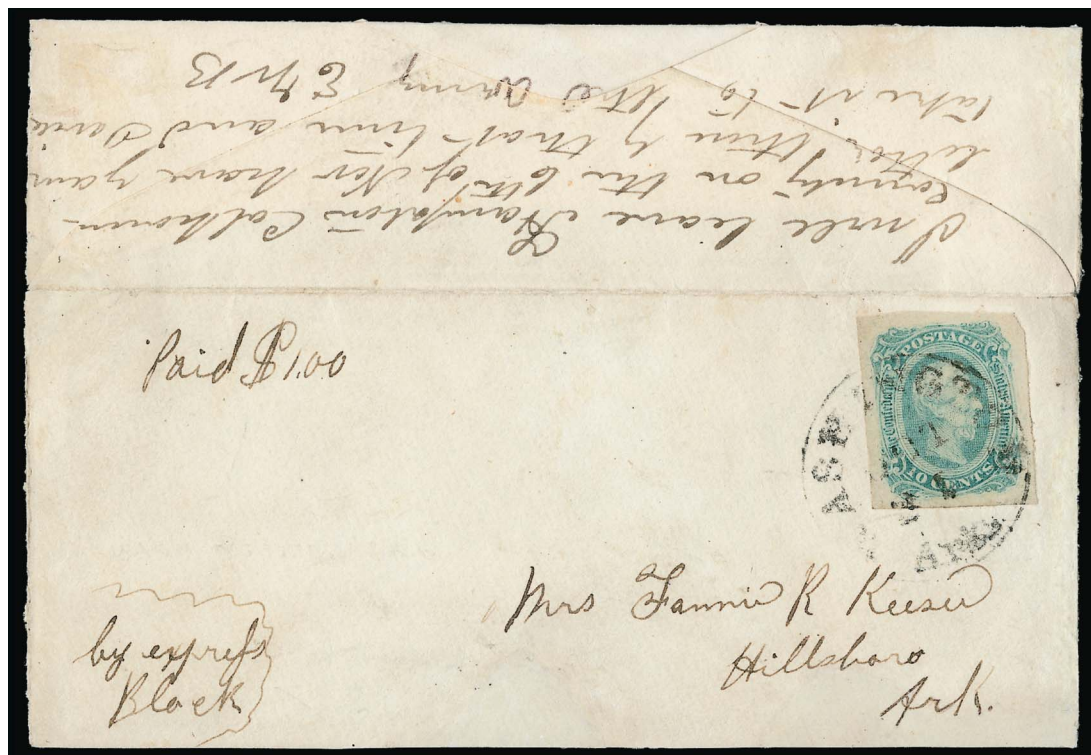 I will leave Hampton Calhoun
County on the 6th of Nov have your
letter ther by that time and I will
take it to the Army E W B
Paid $1.00
POSTAGE
STATES OF
WASHINGTON
Ark
Mrs Fannie R Keeser
Hillsboro
Ark.
by express
Black